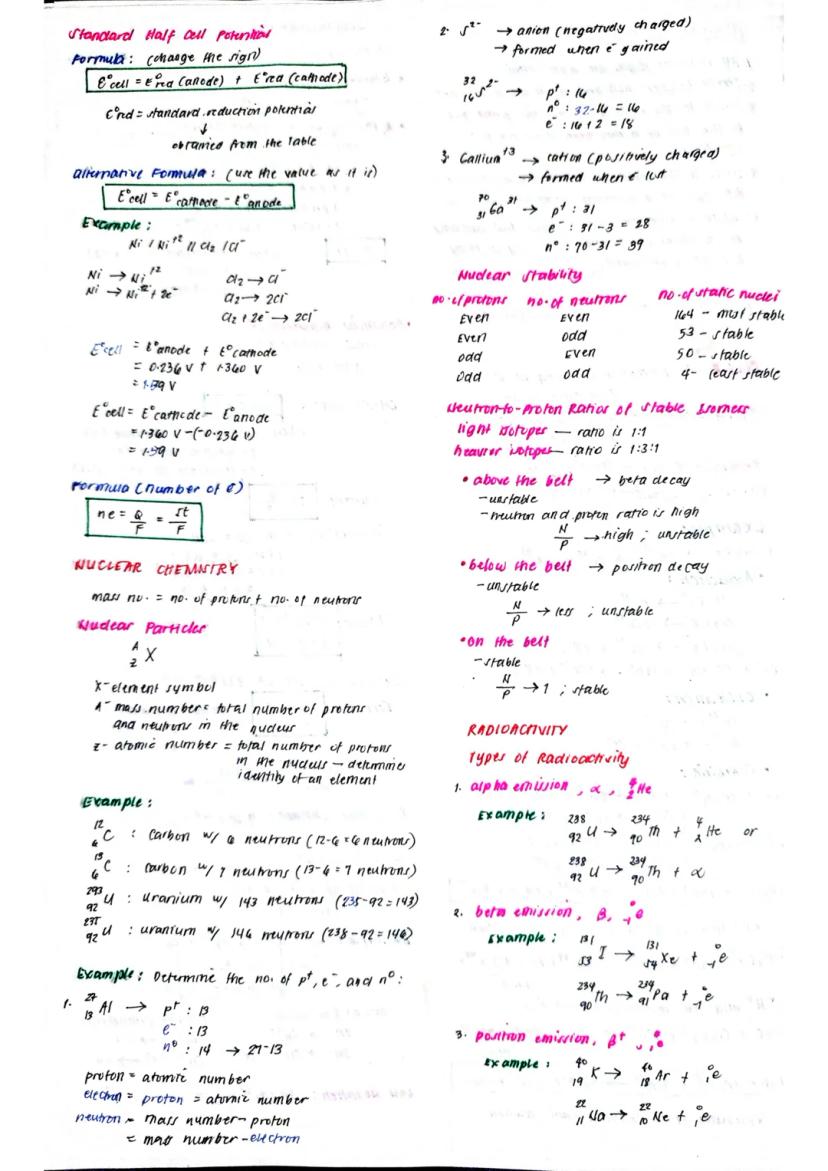 Standard Half Cell Potential
Formula: (change the sign)
E°cell = E°red (anode) + E°red (cathode)
E°red = standard reduction potentials
↓
obtained from the table
Alternative Formula: (use the value as it is)
E°cell = E°cathode - E°anode
Example:
Ni / Ni⁺² // Cl₂ / Cl⁻
Ni → Ni⁺²
Ni → Ni⁺² + 2e⁻
Cl₂ → Cl⁻
Cl₂ → 2Cl⁻
Cl₂ + 2e⁻ → 2Cl⁻
E°cell = E°anode + E°cathode
= 0.236 V + 1.360 V
= 1.59 V
E°cell = E°cathode - E°anode
= 1.360 V - (-0.236 V)
= 1.59 V
Formula (number of e⁻)
ne = Q/F = It/F
NUCLEAR CHEMISTRY
mass no. = no. of protons + no. of neutrons
Nuclear Particles
A
Z X
X - element symbol
A - mass number = total number of protons
and neutrons in the nucleus
Z - atomic number = total number of protons
in the nucleus — determine
identity of an element
Example:
¹²₆C : Carbon w/ 6 neutrons (12-6 = 6 neutrons)
¹³₆C : carbon w/ 7 neutrons (13-6 = 7 neutrons)
₉₂U : uranium w/ 143 neutrons (235-92 = 143)
₉₂U : uranium w/ 146 neutrons (238-92 = 146)
Example: Determine the no. of p⁺, e⁻, and n°:
1. ²⁷₁₃Al → p⁺ : 13
e⁻ : 13
n° : 14 → 27-13
proton = atomic number
electron = proton = atomic number
neutron = mass number - proton
= mass number - electron
2. S²⁻ → anion (negatively charged)
→ formed when e⁻ gained
³²₁₆S²⁻ → p⁺ : 16
n° : 32-16 = 16
e⁻ : 16+2 = 18
3. Gallium⁺³ → cation (positively charged)
→ formed when e⁻ lost
⁷⁰₃₁Ga³⁺ → p⁺ : 31
e⁻ : 31-3 = 28
n° : 70-31 = 39
Nuclear Stability
no. of protons no. of neutrons no. of static nuclei
Even Even 164 - most stable
Even Odd 53 - stable
Odd Even 50 - stable
Odd Odd 4 - least stable
Neutron-to-Proton Ratios of Stable Isomers
light isotopes — ratio is 1:1
heavier isotopes — ratio is 1:3:1
• above the belt → beta decay
- unstable
- neutron and proton ratio is high
N/P → high ; unstable
• below the belt → position decay
- unstable
N/P → less ; unstable
• on the belt
- stable
N/P → 1 ; stable
RADIOACTIVITY
Types of Radioactivity
1. alpha emission, α, ⁴₂He
Example: ²³⁸₉₂U → ²³⁴₉₀Th + ⁴₂He or
²³⁸₉₂U → ²³⁴₉₀Th + α
2. beta emission, β, ⁰₋₁e
Example: ¹³¹₅₃I → ¹³¹₅₄Xe + ⁰₋₁e
²³⁴₉₀Th → ²³⁴₉₁Pa + ⁰₋₁e
3. positron emission, β⁺
Example: ⁴⁰₁₉K → ⁴⁰₁₈Ar + ⁰₁e
²²₁₁Na → ²²₁₀Ne + ⁰₁e